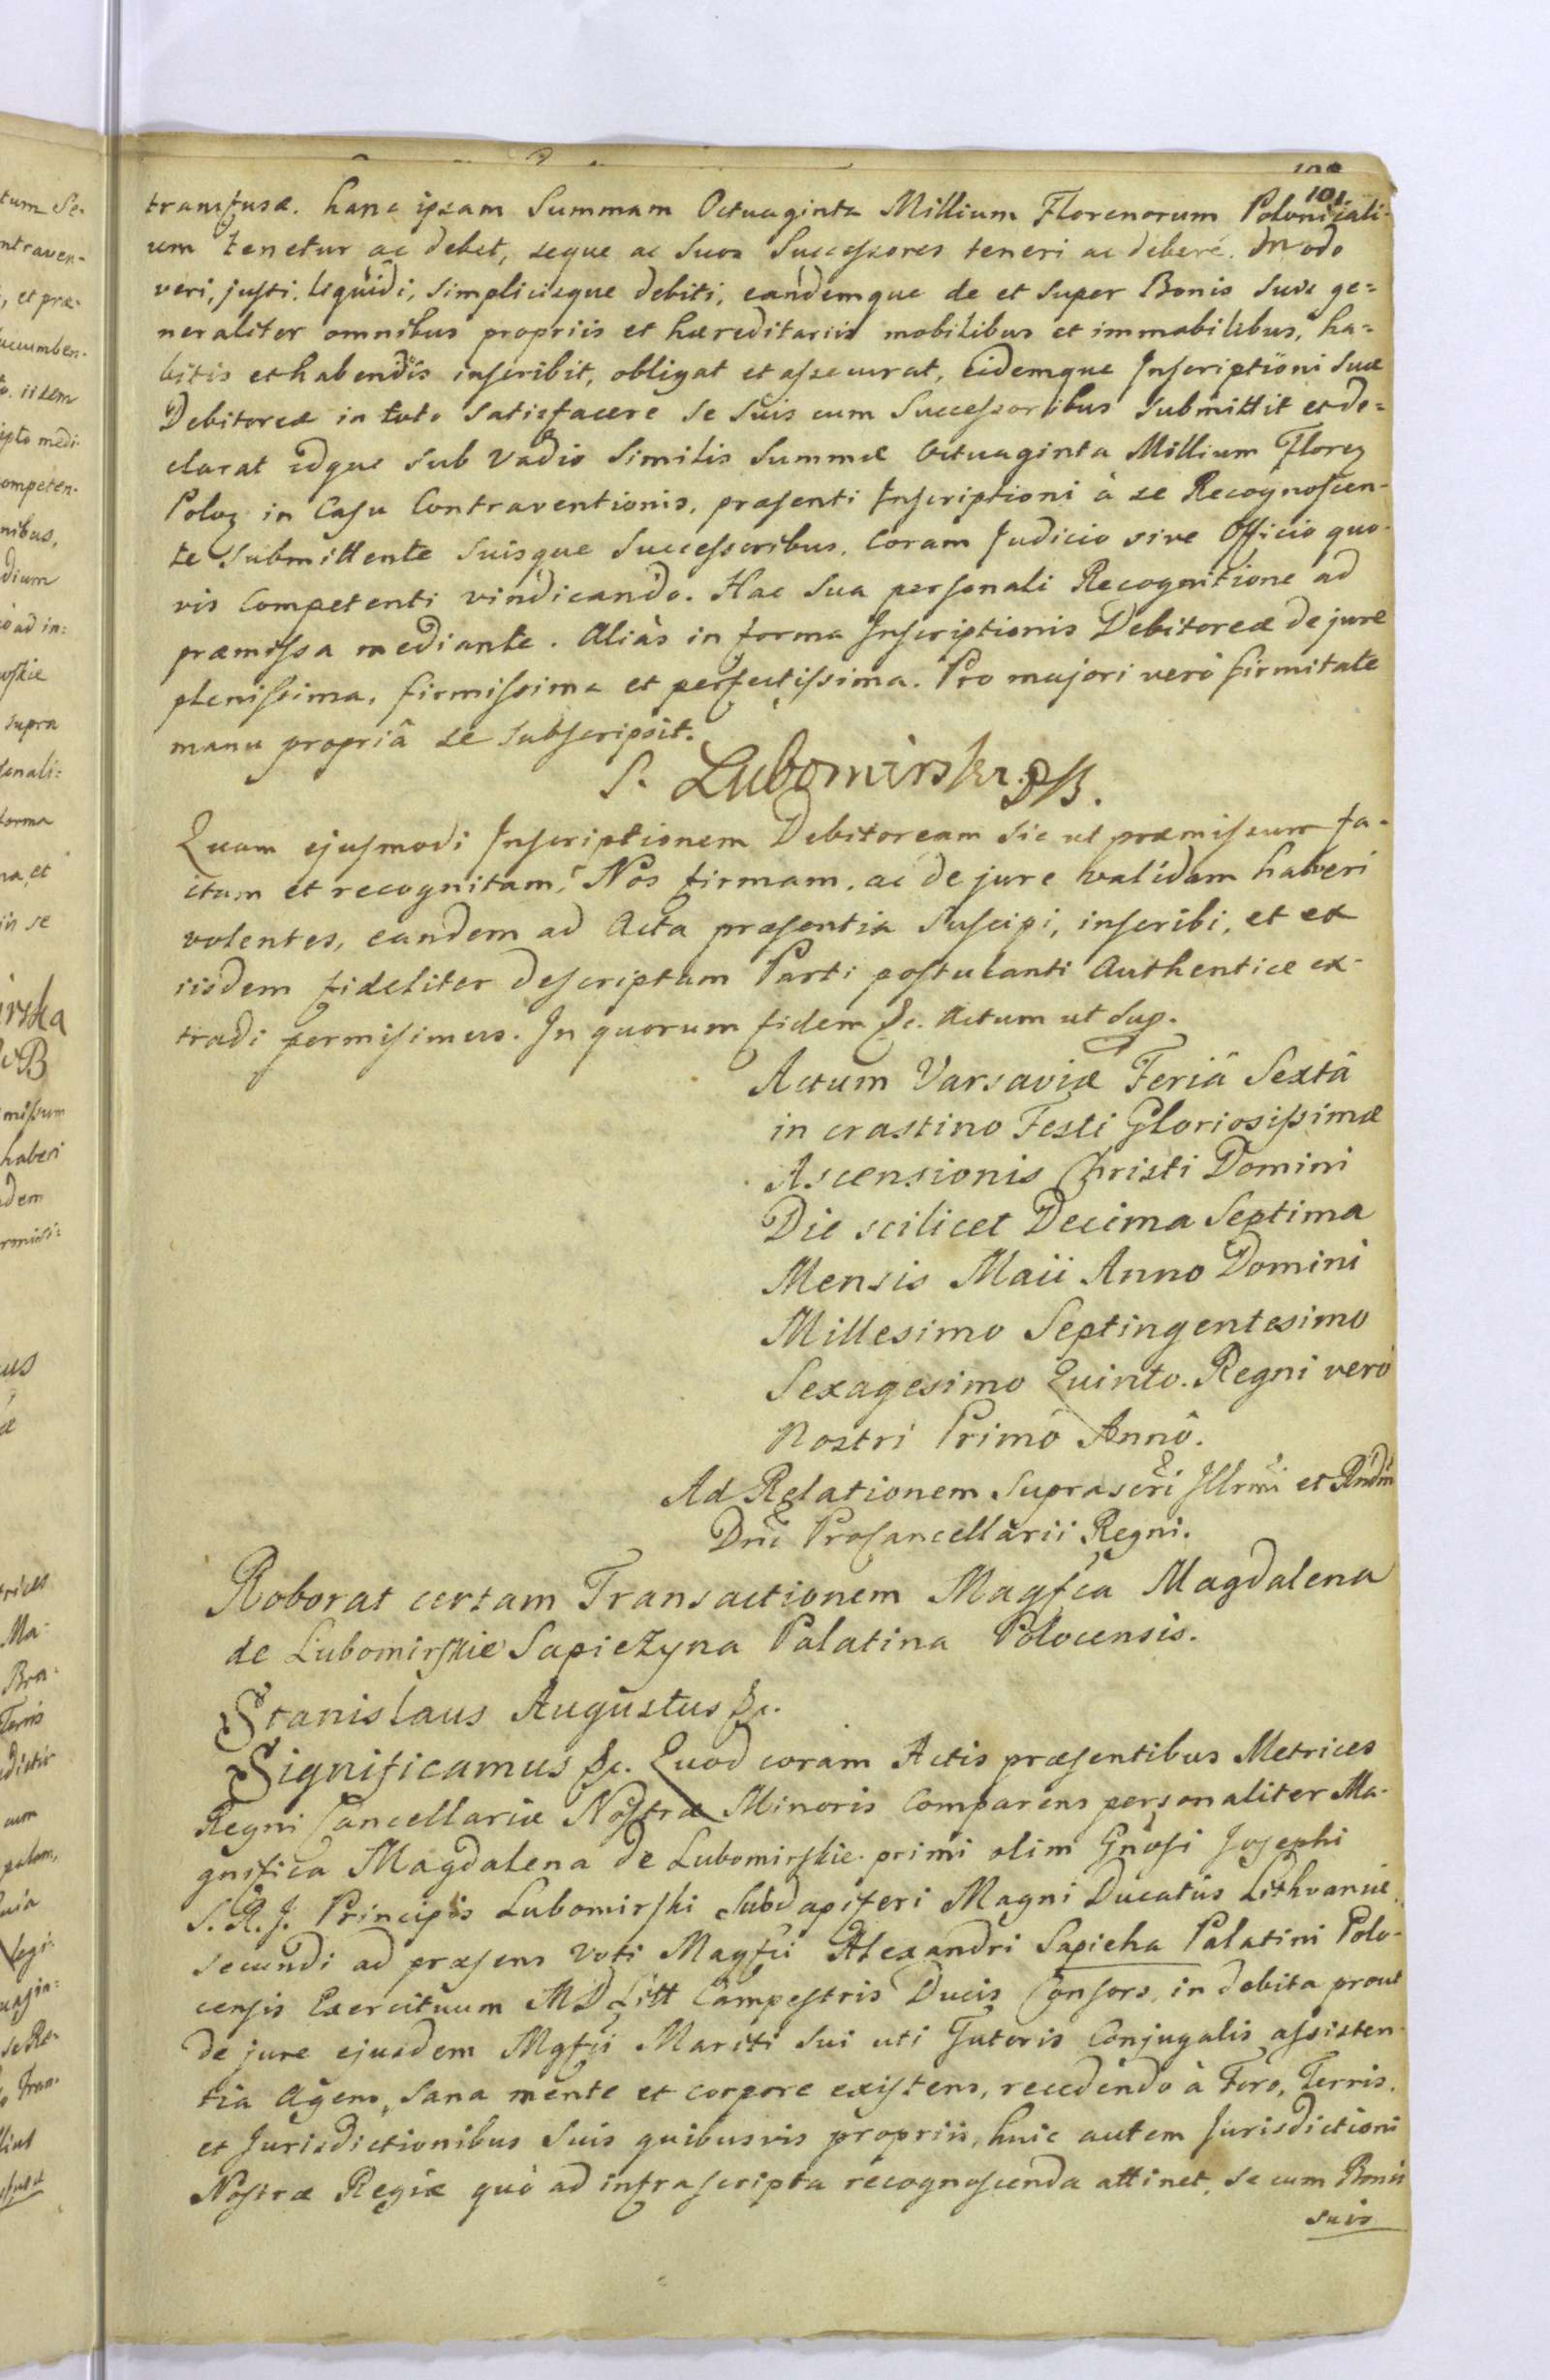 101.
transfusæ. hanc ipsam Summam Octuaginta Millium Florenorum Polonicali-
um tenetur ac debet, seque ac Suos Successores teneri ac debere. Modo
veri, justi, liquidi, simplicisque debiti, eandemque de et super Bonis Suis ge=
neraliter omnibus propriis et hæreditariis mobilibus et immobilibus, ha=
bitis et habendis inscribit, obligat et assecurat, eidemque Inscriptioni Suæ
Debitoreæ in toto Satisfacere se Suis cum Successoribus Submittit et de=
clarat idque Sub Vadio Similis Summæ Octuaginta Millium Florez
Poloz in Casu Contraventionis, præsenti Inscriptioni à se Recognoscen-
te Submittente Suisque Successoribus, Coram Judicio sive Officio quo-
vis Competenti vindicando. Hac Sua personali Recognitione ad
præmissa mediante. Aliàs in forma Inscriptionis Debitoreæ de jure
plenissima, firmissima et perfectissima. Pro majori verò firmitate
manu propriâ se Subscripsit.
S. Lubomirski
Quam ejusmodi Inscriptionem Debitoream Sic ut præmissum fa-
ctam et recognitam, Nos firmam, ac de jure validam haberi
volentes, eandem ad Acta præsentia Suscipi, inscribi, et ex
iisdem fideliter descriptam Parti postulanti Authentice ex-
tradi permisimus. In quorum fidem &c. Actum ut Sup.
Actum Varsaviæ Feriâ Sextâ
in crastino Festi Gloriosissimæ
Ascensionis Christi Domini
Die scilicet Decima Septima
Mensis Maii Anno Domini
Millesimo Septingentesimo
Sexagesimo Quinto. Regni verò
Nostri Primô Annô.
Ad Relationem Suprascri Illrmi et Rndmi
Dni Procancellarii Regni.
Roborat certam Transactionem Magfca Magdalena
de Lubomirskie Sapiezyna Palatina Polocensis.
Stanislaus Augustus &c.
Significamus &c. Quod coram Actis præsentibus Metrices
Regni Cancellariæ Nostræ Minoris Comparens personaliter Ma-
gnifica Magdalena de Lubomirskie primi olim Gnosi Josephi
S. R. J. Principis Lubomirski Subdapiferi Magni Ducatûs Lithvaniæ,
secundi ad præsens Voti Magfci Alexandri Sapieha Palatini Polo-
censis Exercituum M D Litt Campestris Ducis Consors, in debita prout
de jure ejusdem Mgfci Mariti Sui uti Tutoris Conjugalis assisten-
tia Agens, Sana mente et corpore existens, recedendo à Foro, Terris,
et Jurisdictionibus Suis quibusvis propriis, huic autem Jurisdictioni
Nostræ Regiæ quò ad infrascripta recognoscenda attinet, se cum Bonis
suis